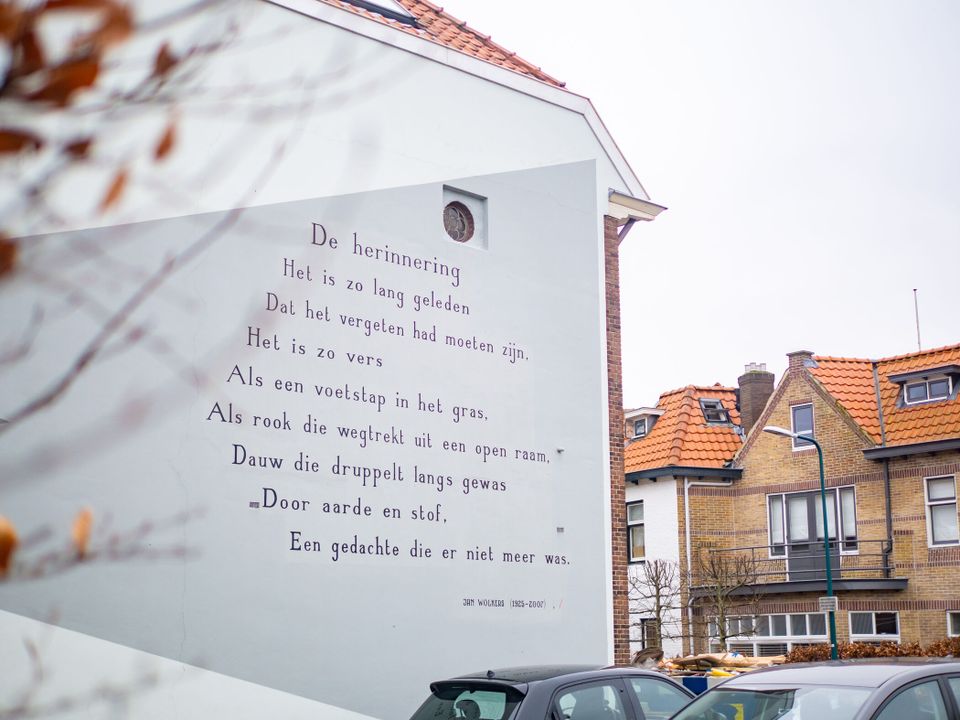 De herinnering
Het is zo lang geleden
Dat het vergeten had moeten zijn,
Het is zo vers
Als een voetstap in het gras,
Als rook die wegtrekt uit een open raam,
Dauw die druppelt langs gewas
Door aarde en stof,
Een gedachte die er niet meer was.
JAN WOLKERS (1925-2007)